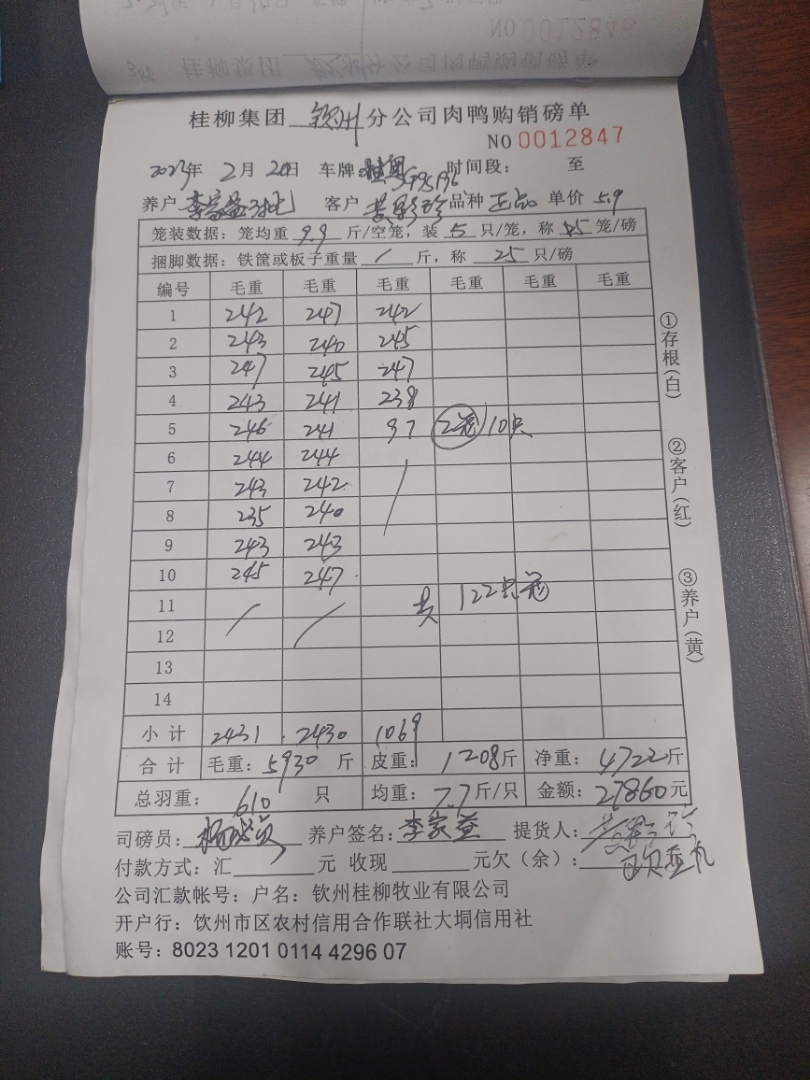 NO 0012846
桂柳集团 钦州 分公司肉鸭购销磅单
NO 0012847
2023年 2月 20日 车牌: 时间段: 至
养户 李家益 客户 黄彩珍 品种 正品 单价 5.9
笼装数据: 笼均重 9.9 斤/空笼, 装 5 只/笼, 称 笼/磅
捆脚数据: 铁筐或板子重量 / 斤, 称 25 只/磅
编号 毛重 毛重 毛重 毛重 毛重 毛重
1 242 247 242
2 243 240 245
3 247 245 247
4 243 241 238
5 246 241 97 2笼 10只
6 244 244 /
7 243 242
8 235 240
9 243 243
10 245 247
11 / / 共 122只笼
12
13
14
小计 2431 2430 1069
合计 毛重: 5930 斤 皮重: 1208斤 净重: 4722斤
总羽重: 610 只 均重: 7.7斤/只 金额: 27860元
司磅员: 养户签名: 李家益 提货人:
付款方式: 汇 元 收现 元欠(余):
公司汇款帐号: 户名: 钦州桂柳牧业有限公司
开户行: 饮州市区农村信用合作联社大垌信用社
账号: 8023 1201 0114 4296 07
①存根(白)
②客户(红)
③养户(黄)